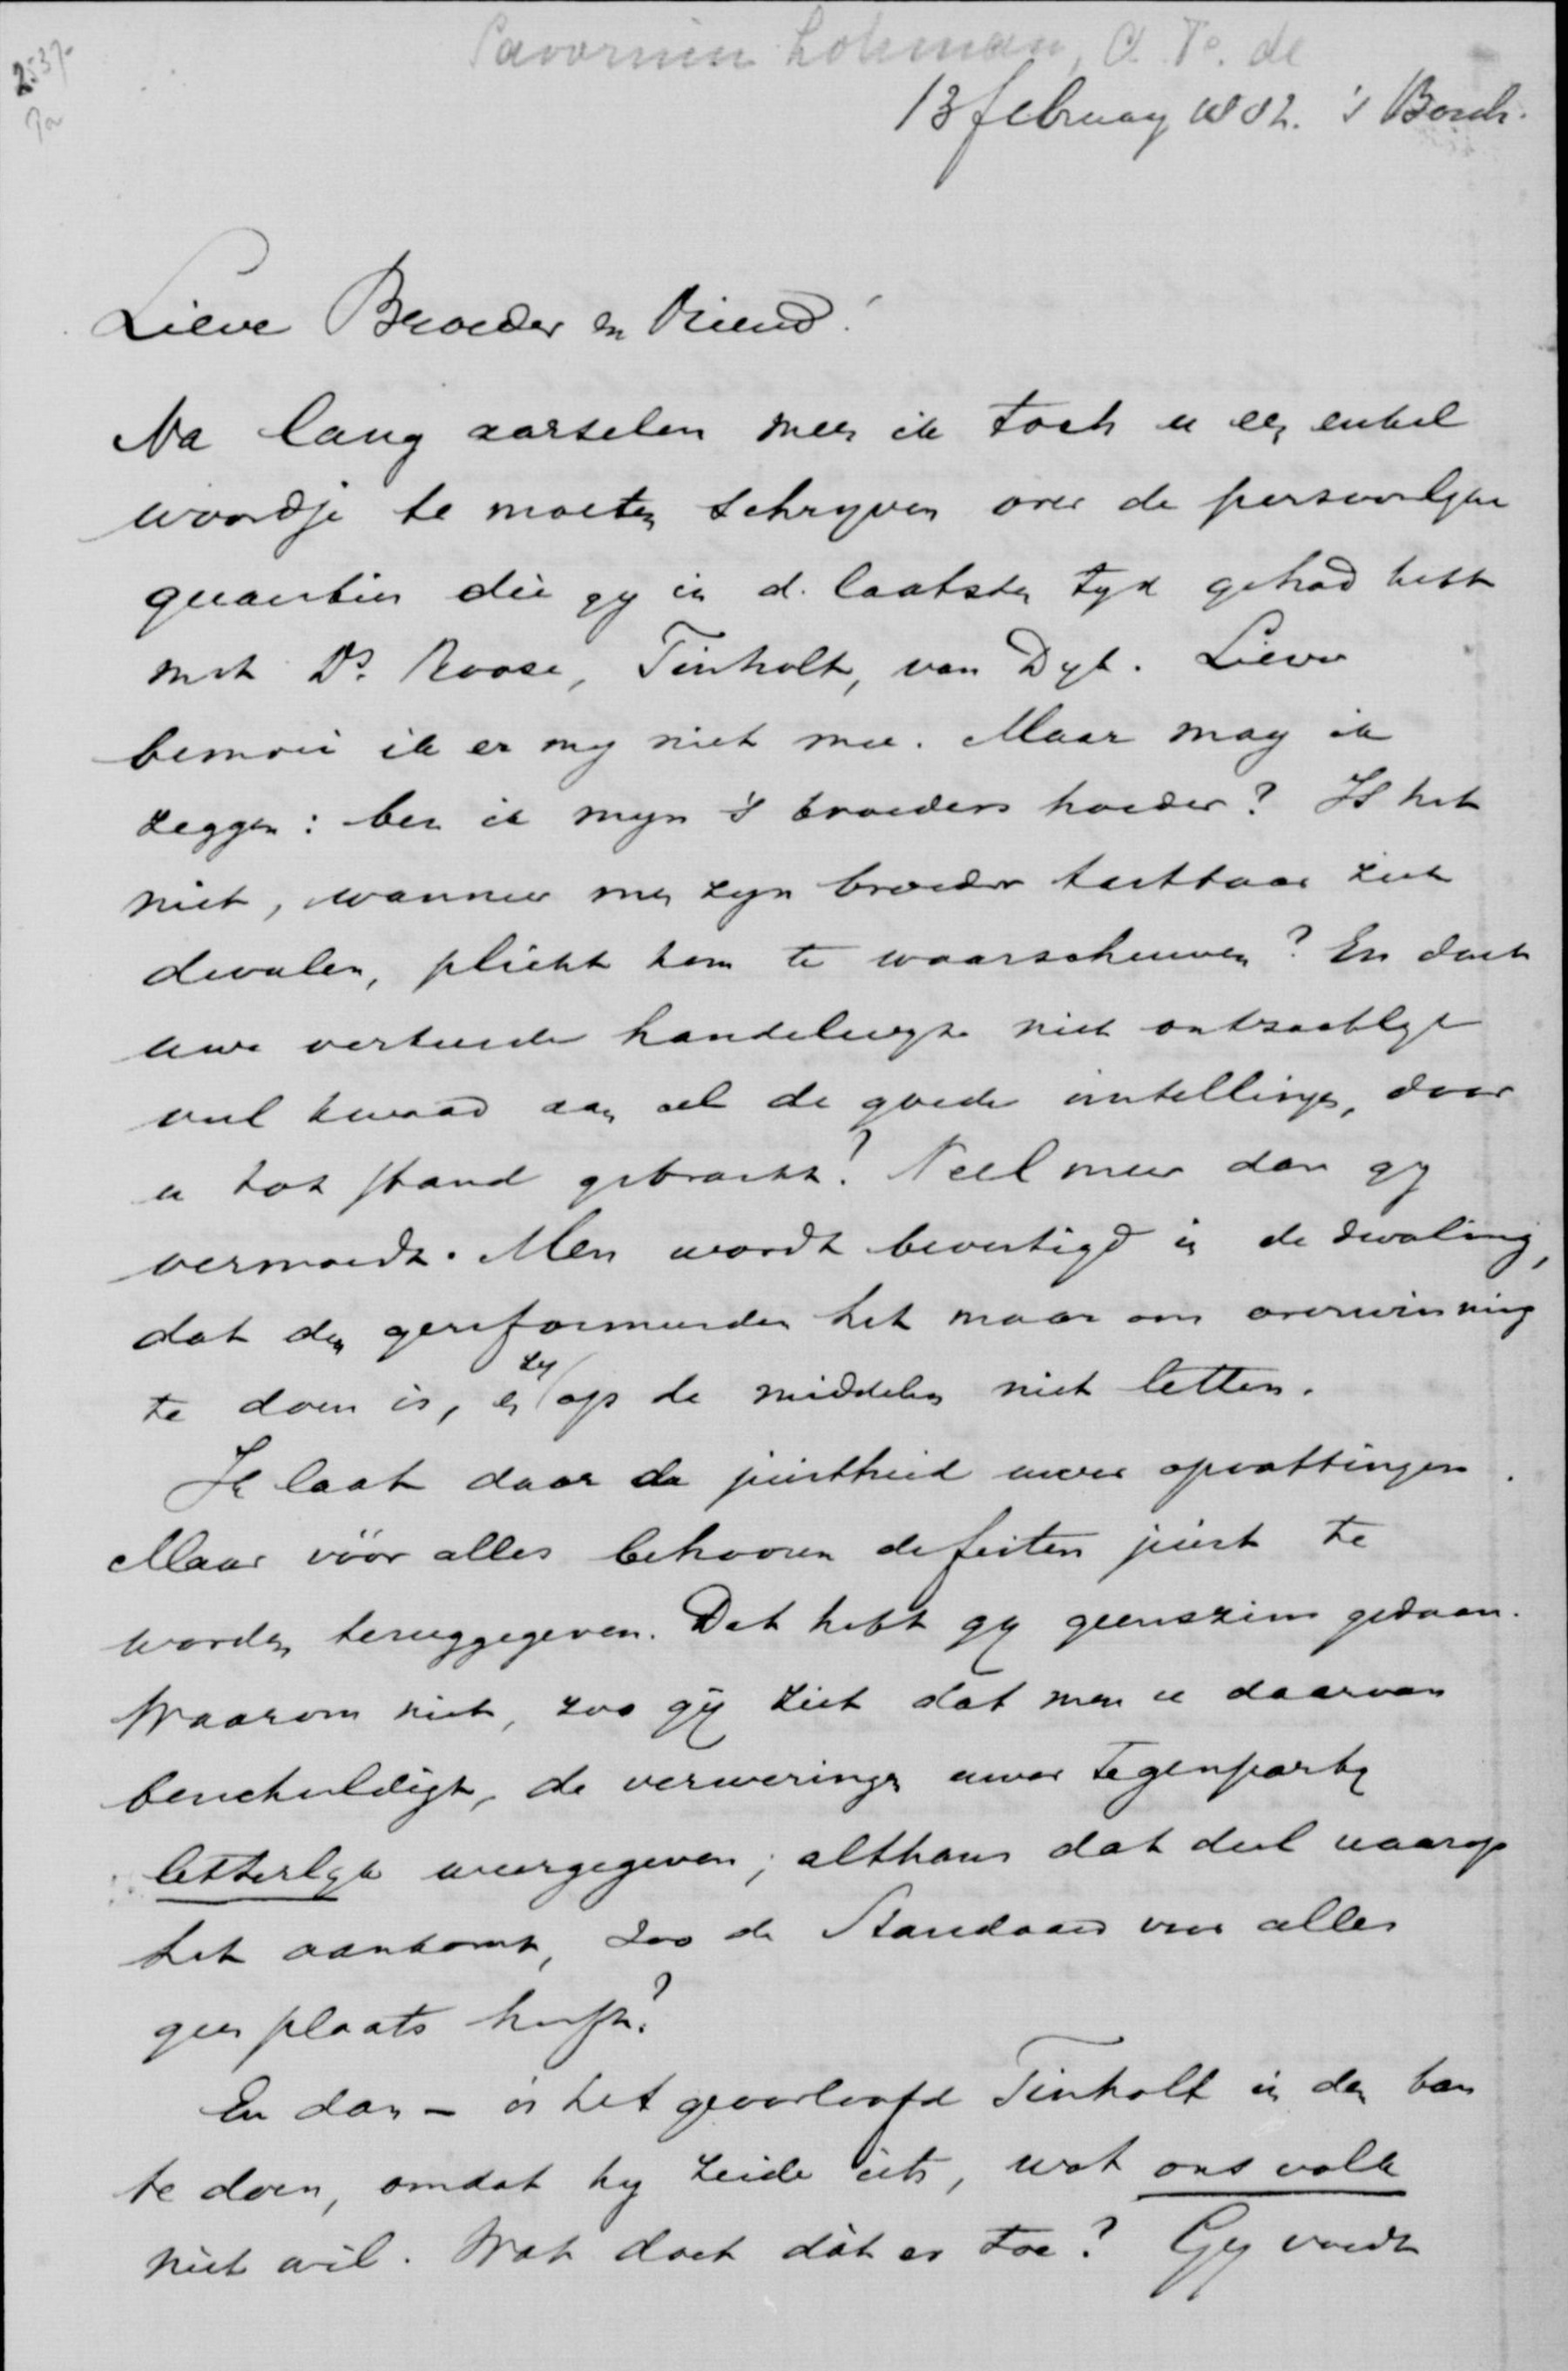 2537a
Savornin Lohman, A. F. de
13 february 1882. 's Bosch.
Lieve Broeder en Vriend!
Na lang aarselen meen ik toch u een enkel
woordje te moeten schryven over de persoonlyke
quaesties die gy in d. laatsten tyd gehad hebt
met Ds. Roose, Tinholt, van Dyk. Liever
bemoei ik er my niet mee. Maar mag ik
zeggen: ben ik myn 's broeders hoeder? Is het
niet, wanneer men zyn broeder tastbaar ziet
dwalen, plicht hem te waarschuwen? En doet
uwe verkeerde handelwyze niet ontzachlyk
veel kwaad aan al de goede instellingen, door
u tot stand gebracht? Veel meer dan gy
vermoedt. Men wordt bevestigd in de dwaling,
dat den gereformeerden het maar om overwinning
te doen is, en zy op de middelen niet letten.
Ik laat daar de juistheid uwer opvattingen.
Maar vóór alles behooren de feiten juist te
worden teruggegeven. Dat hebt gy geenszins gedaan.
Waarom niet, zoo gy ziet dat men u daarvan
beschuldigt, de verweringen uwer tegenparty
letterlyk weergegeven; althans dat deel waarop
het aankomt, zoo de Standaard voor alles
geen plaats heeft?
En dan – is het geoorloofd Tinholt in den ban
te doen, omdat hy zeide iets, wat ons volk
niet wil. Wat doet dàt er toe? Gy voedt